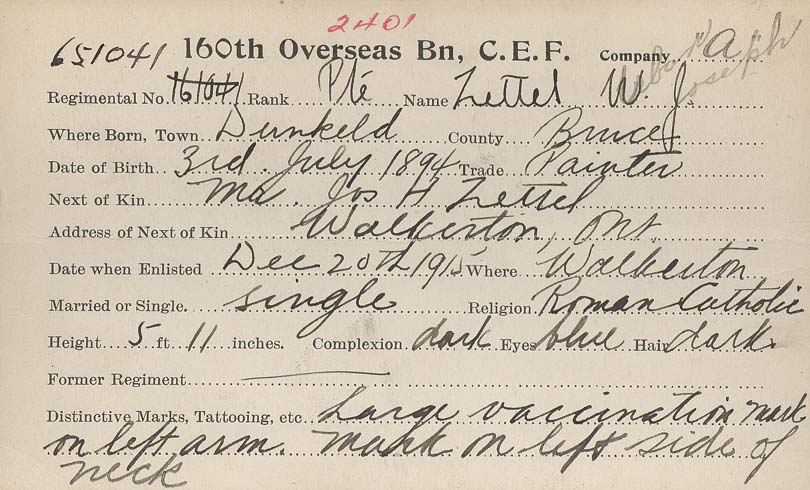 2401
651041 160th Overseas Bn, C.E.F. Company "A"
Joseph
Regimental No. 161041 Rank Pte Name Zettel W. J.
Where Born, Town Dunkeld County Bruce
Date of Birth 3rd. July 1894 Trade Painter
Next of Kin Mr. Jos H Zettel
Address of Next of Kin Walkerton, Ont.
Date when Enlisted Dec 20th 1915 Where Walkerton
Married or Single. single Religion Roman Catholic
Height 5 ft. 11 inches. Complexion dark Eyes blue Hair dark.
Former Regiment
Distinctive Marks, Tattooing, etc. Large vaccination mark
on left arm. Mark on left side of
neck